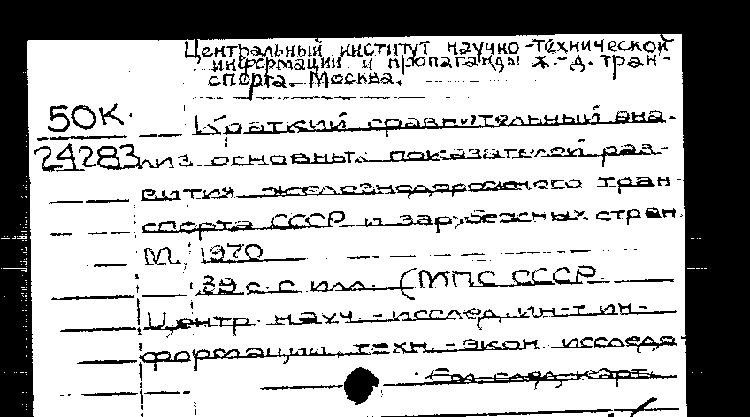 Центральный институт научно-технической
информации и пропаганды ж.-д. тран-
спорта. Москва.
50К.
Краткий сравнительный ана-
24283
лиз основных показателей раз-
вития железнодорожного тран
спорта СССР и зарубежных стран
М, 1970
39 с. с илл. (МПС СССР.
Центр. науч.-исслед. ин-т ин-
формации, техн.-экон. исследо-
См. след. карт.